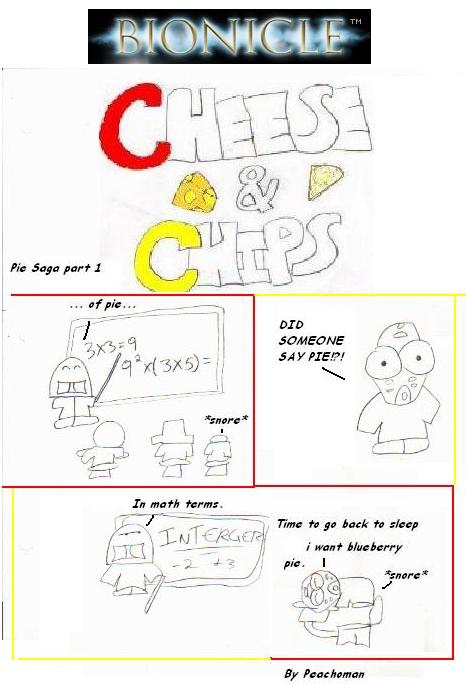 BIONICLE™
CHEESE
&
CHIPS
Pie Saga part 1
... of pie...
3x3=9
9²x(3x5)=
*snore*
DID
SOMEONE
SAY PIE!?!
In math terms.
INTERGER
-2 +3
Time to go back to sleep
i want blueberry
pie.
*snore*
By Peachoman